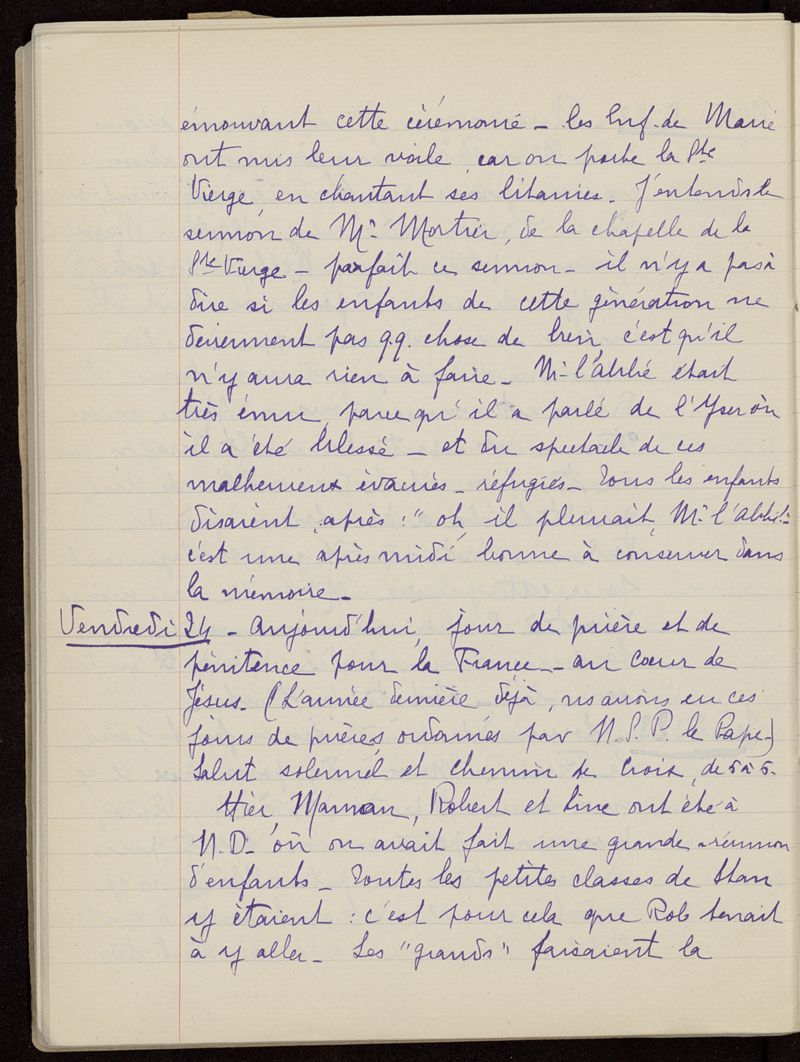 émouvant cette cérémonie - les Enf. de Marie
ont mis leur voile, car on porte la Ste
Vierge, en chantant ses litanies. J'entends le
sermon de Mr Mortier, de la chapelle de la
Ste Vierge - parfait ce sermon - il n'y a pas à
dire si les enfants de cette génération ne
deviennent pas q.q. chose de bien, c'est qu'il
n'y aura rien à faire - Mr l'abbé était
très ému, parce qu'il a parlé de l'Yser où
il a été blessé - et du spectacle de ces
malheureux évacués - réfugiés - Tous les enfants
disaient, après : "oh, il pleurait, Mr l'Abbé"
c'est une après midi bonne à conserver dans
la mémoire -
Vendredi 24 - Aujourd'hui, jour de prière et de
pénitence pour la France - au cœur de
Jésus - (L'année dernière déjà, ns avions eu ces
jours de prières, ordonnés par N.S.P. le Pape -)
Salut solennel et chemin de Croix, de 5 à 6.
Hier, Maman, Robert et Line ont été à
N.D. où on avait fait une grande réunion
d'enfants - Toutes les petites classes de Stan
y étaient : c'est pour cela que Rob tenait
à y aller - Les "grands" faisaient la